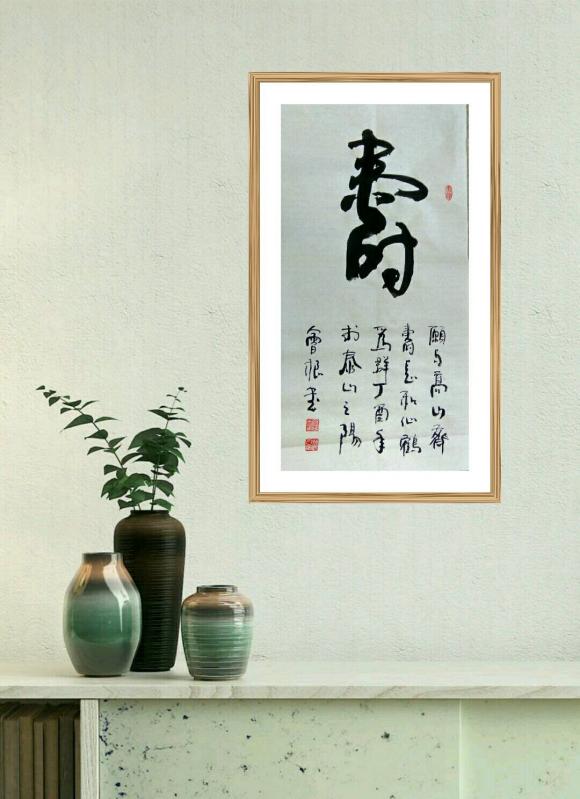 壽
願与高山齊
壽長和仙鶴
為群丁酉年
於泰山之陽
會根書